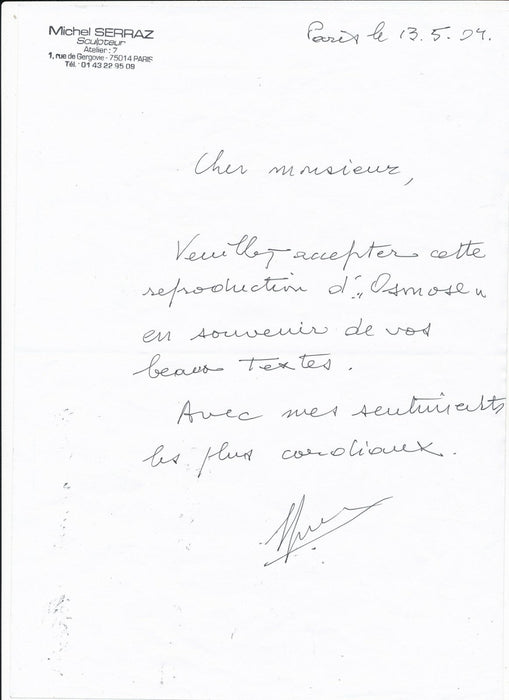 Michel SERRAZ
Sculpteur
Atelier : 7
1, rue de Gergovie - 75014 PARIS
Tél. : 01 43 22 95 09
Paris le 13.5.04.
Cher monsieur,
Veuillez accepter cette
reproduction d'„Osmose"
en souvenir de vos
beaux textes.
Avec mes sentiments
les plus cordiaux.